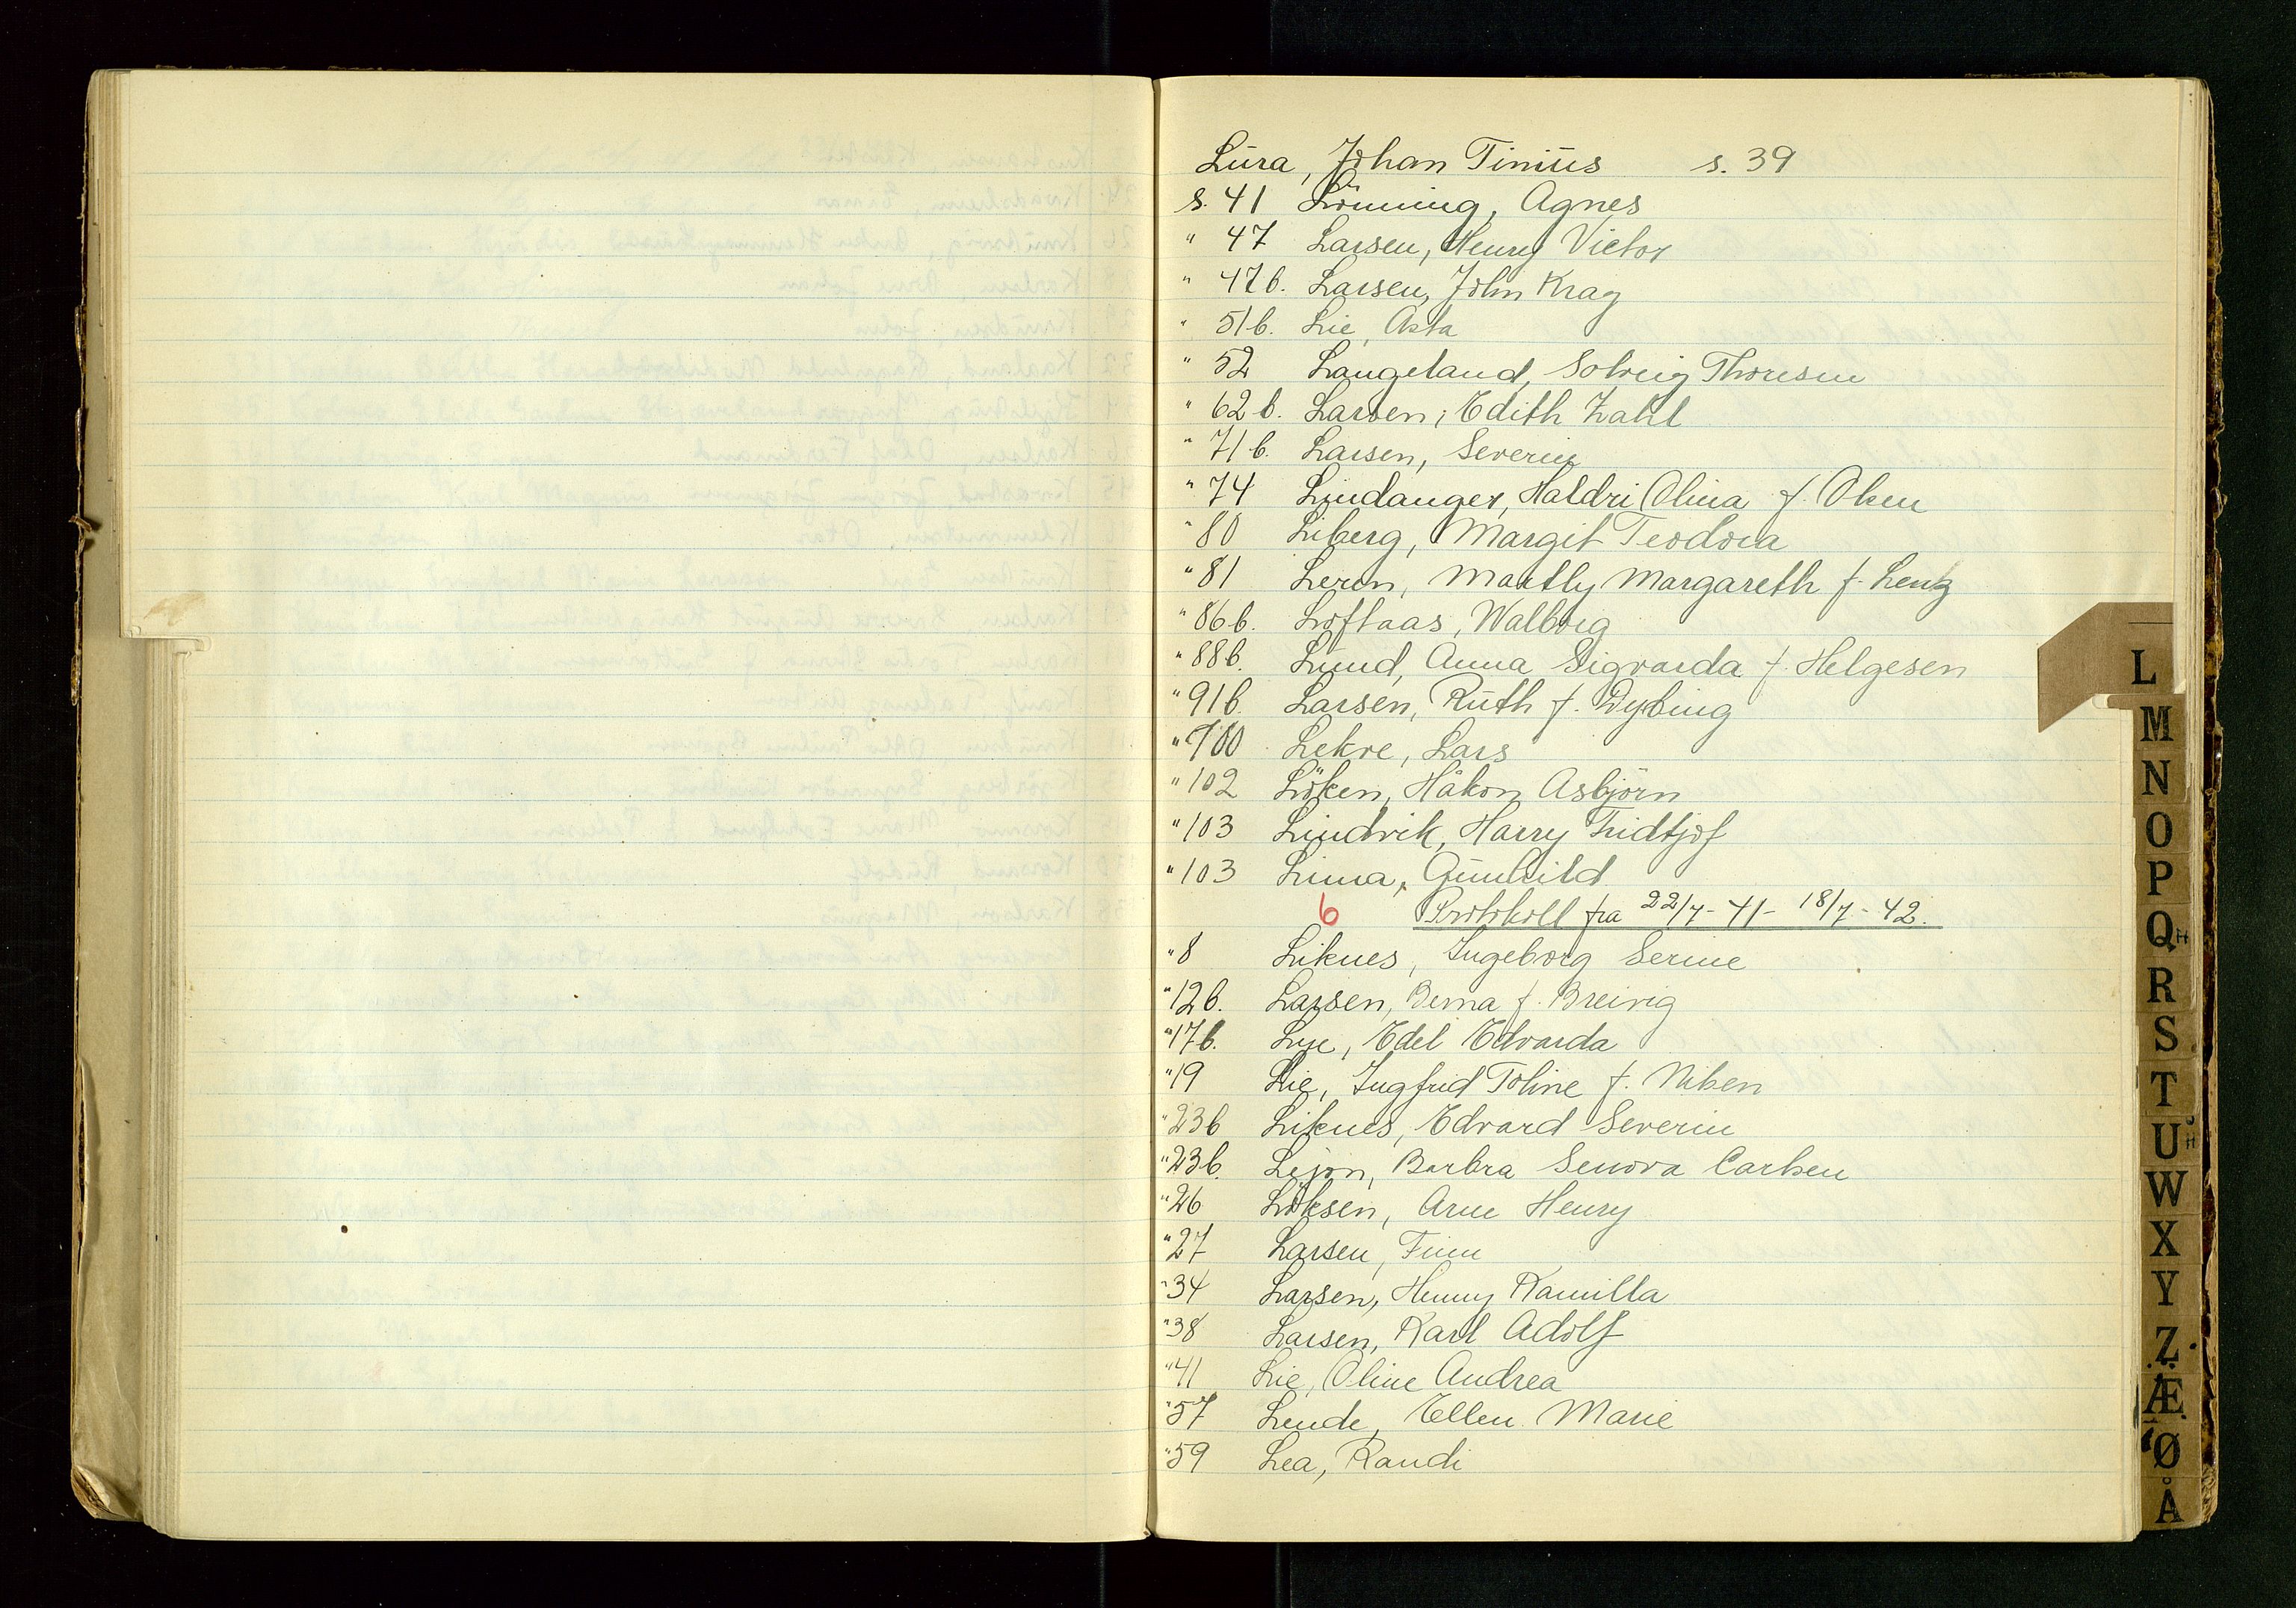 Lura, Johan Tinius s. 39
s. 41 Lönning, Agnes
" 47 Larsen, Henry Victor
" 47b. Larsen, John Krag
" 51b. Lie, Asta
" 52 Langeland, Solveig Thoresen
" 62b. Larsen, Edith Zahl
" 71b. Larsen, Severin
" 74 Lindanger, Haldri Olina f. Olsen
" 80 Liberg, Margit Teodora
" 81 Leren, Maftly Margareth f. Lentz
" 86b. Loftaas, Walborg
" 88b. Lund, Anna Sigvarda f. Helgesen
" 91b. Larsen, Ruth f. Dybing
" 100 Lekve, Lars
" 102 Löken, Håkon Asbjörn
" 103 Lindvik, Harry Fridtjof
" 103 Lima, Gunhild
6 Protokoll fra 22/7-41- 18/7-42.
" 8 Liknes, Ingeborg Serine
" 12b. Larsen, Berna f. Breivig
" 17b. Lye, Edel Edvarda
" 19 Lie, Ingfrid Toline f. Nilsen
" 23b Liknes, Edvard Severin
" 23b. Lejon, Barbra Senora Carlsen
" 26 Löksen, Arne Henry
" 27 Larsen, Finn
" 34 Larsen, Henny Kamilla
" 38 Larsen, Karl Adolf
" 41 Lie, Oline Andrea
" 57 Lende, Ellen Marie
" 59 Lea, Randi
L
M
N
O
P
Q
R
S
T
U
W
X
Y
Z
Æ
Ø
Å